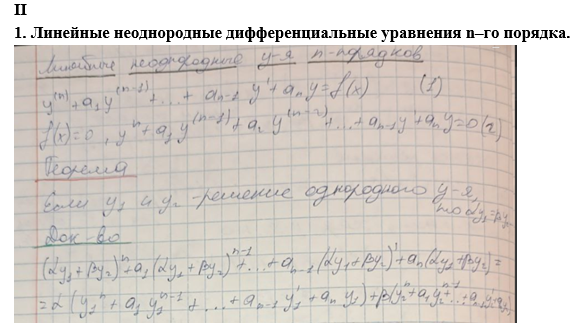 II
1. Линейные неоднородные дифференциальные уравнения n–го порядка.
Линейные неоднородные у-я n-порядков
y⁽ⁿ⁾ + a₁y⁽ⁿ⁻¹⁾ + ... + aₙ₋₁y' + aₙy = f(x) (1)
f(x)=0, yⁿ + a₁y⁽ⁿ⁻¹⁾ + a₂y⁽ⁿ⁻²⁾ + ... + aₙ₋₁y' + aₙy = 0 (2)
Теорема
Если y₁ и y₂ - решение однородного у-я,
то αy₁
Док-во
(αy₁ + βy₂)ⁿ + a₁(αy₁ + βy₂)ⁿ⁻¹ + ... + aₙ₋₁(αy₁ + βy₂)' + aₙ(αy₁ + βy₂) =
= α(y₁ⁿ + a₁y₁ⁿ⁻¹ + ... + aₙ₋₁y₁' + aₙy₁) + β(y₂ⁿ + a₁y₂ⁿ⁻¹ + ... +